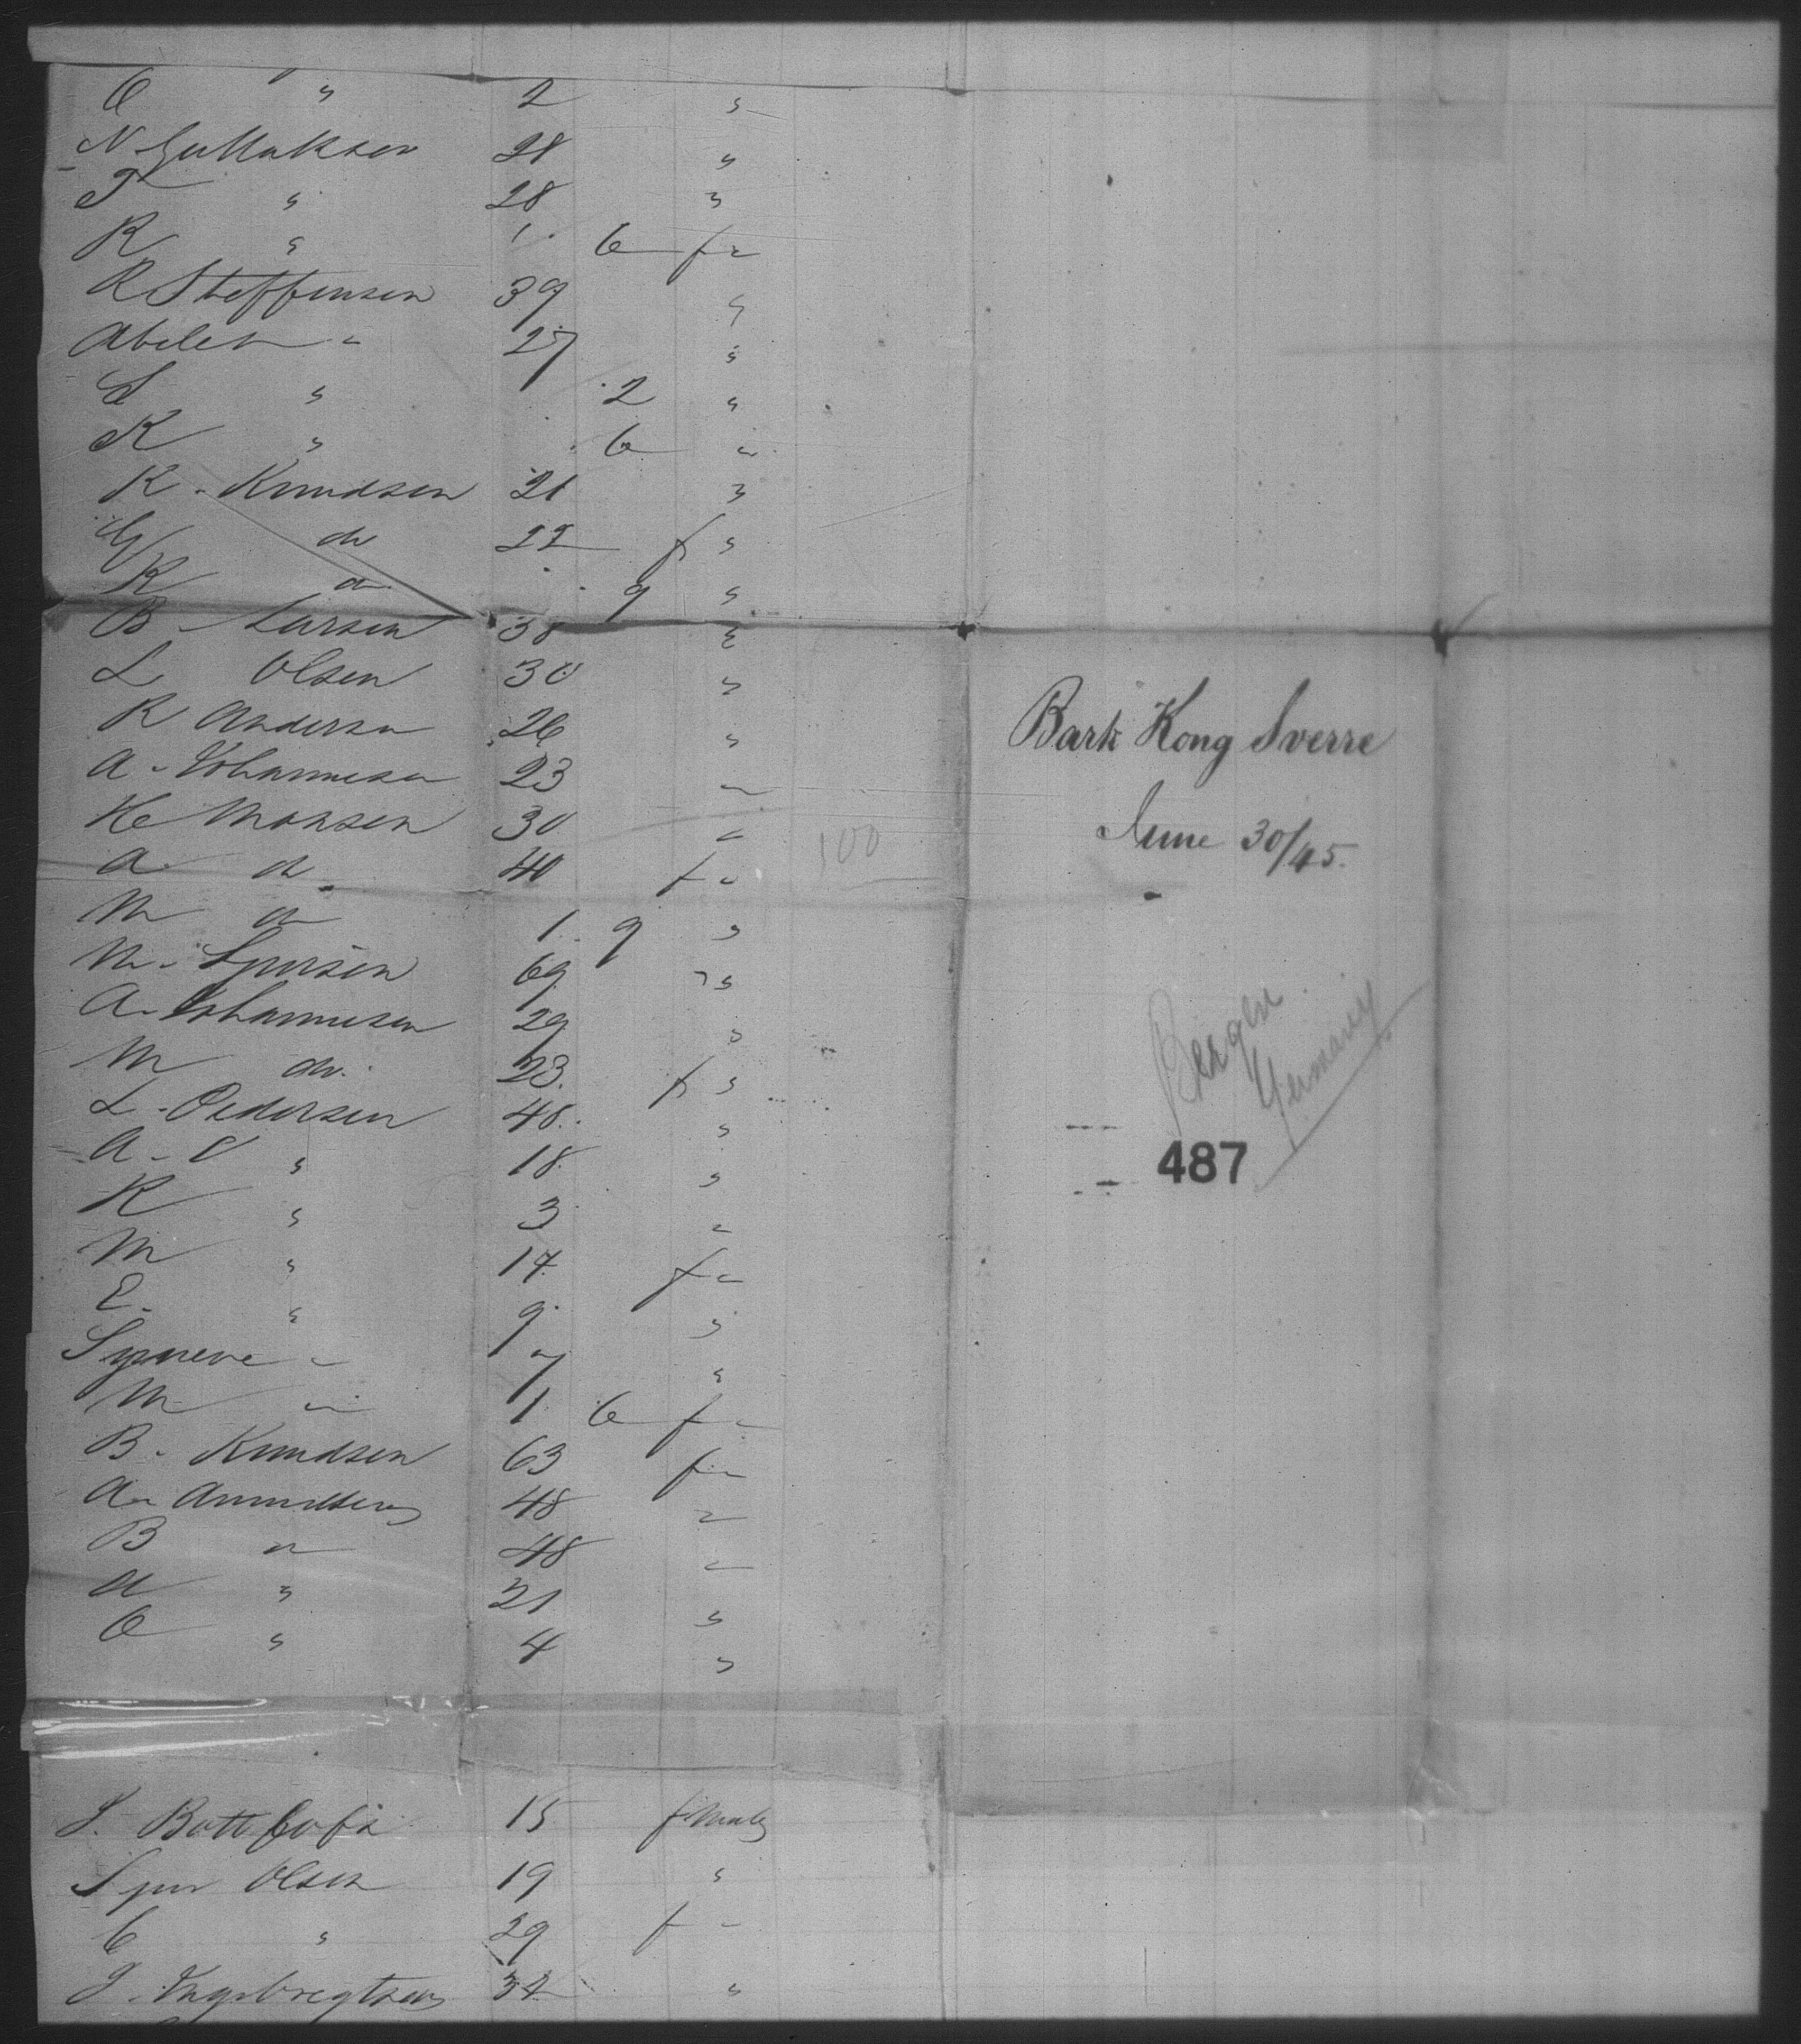 O " 2 "
N Gullaksen 28 "
T " 28 "
R " 1 6 f "
R Steffensen 39 "
Abelet " 27 "
S " 2 "
K " 6 "
K. Knudsen 21 "
G do 22 f "
K do 9 "
B. Larsen 38 "
L Olsen 30 "
R Andersen 26 "
A. Johannesen 23 "
He Monsen 30 "
A do 40 f "
100
M do 1 9 "
M. 69 "
A. Johannesen 29 "
M do. 23. f "
L. Pedersen 48. "
A. O " 18 "
K " 3 "
M " 14 f "
E. " 9 "
Synneve " 7 "
M " 1 6 f "
B. Knudsen 63 f "
A. 48 "
B " 48 "
A " 21 "
O " 4 "
S. 15 female
Olsen 19 "
C " 29 f "
J. Ingebregtsen 32 "
Bark Kong Sverre
June 30/45.
Bergen
Germany
487